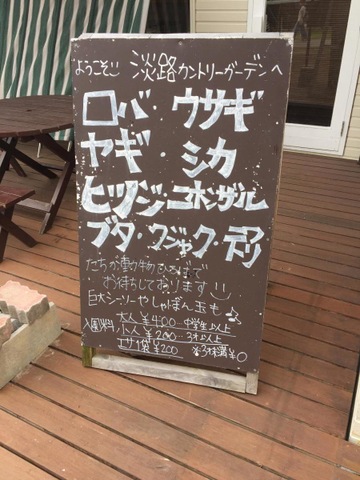 ようこそ 淡路カントリーガーデンへ
ロバ・ウサギ
ヤギ・シカ
ヒツジ・ニホンザル
ブタ・クジャク・アリ
たちが動物ひろばで
お待ちしております
巨大シーソーやしゃぼん玉も♪
入園料 大人¥400…中学生以上
小人¥200…3才以上
エサ1袋¥200 ※3才未満¥0